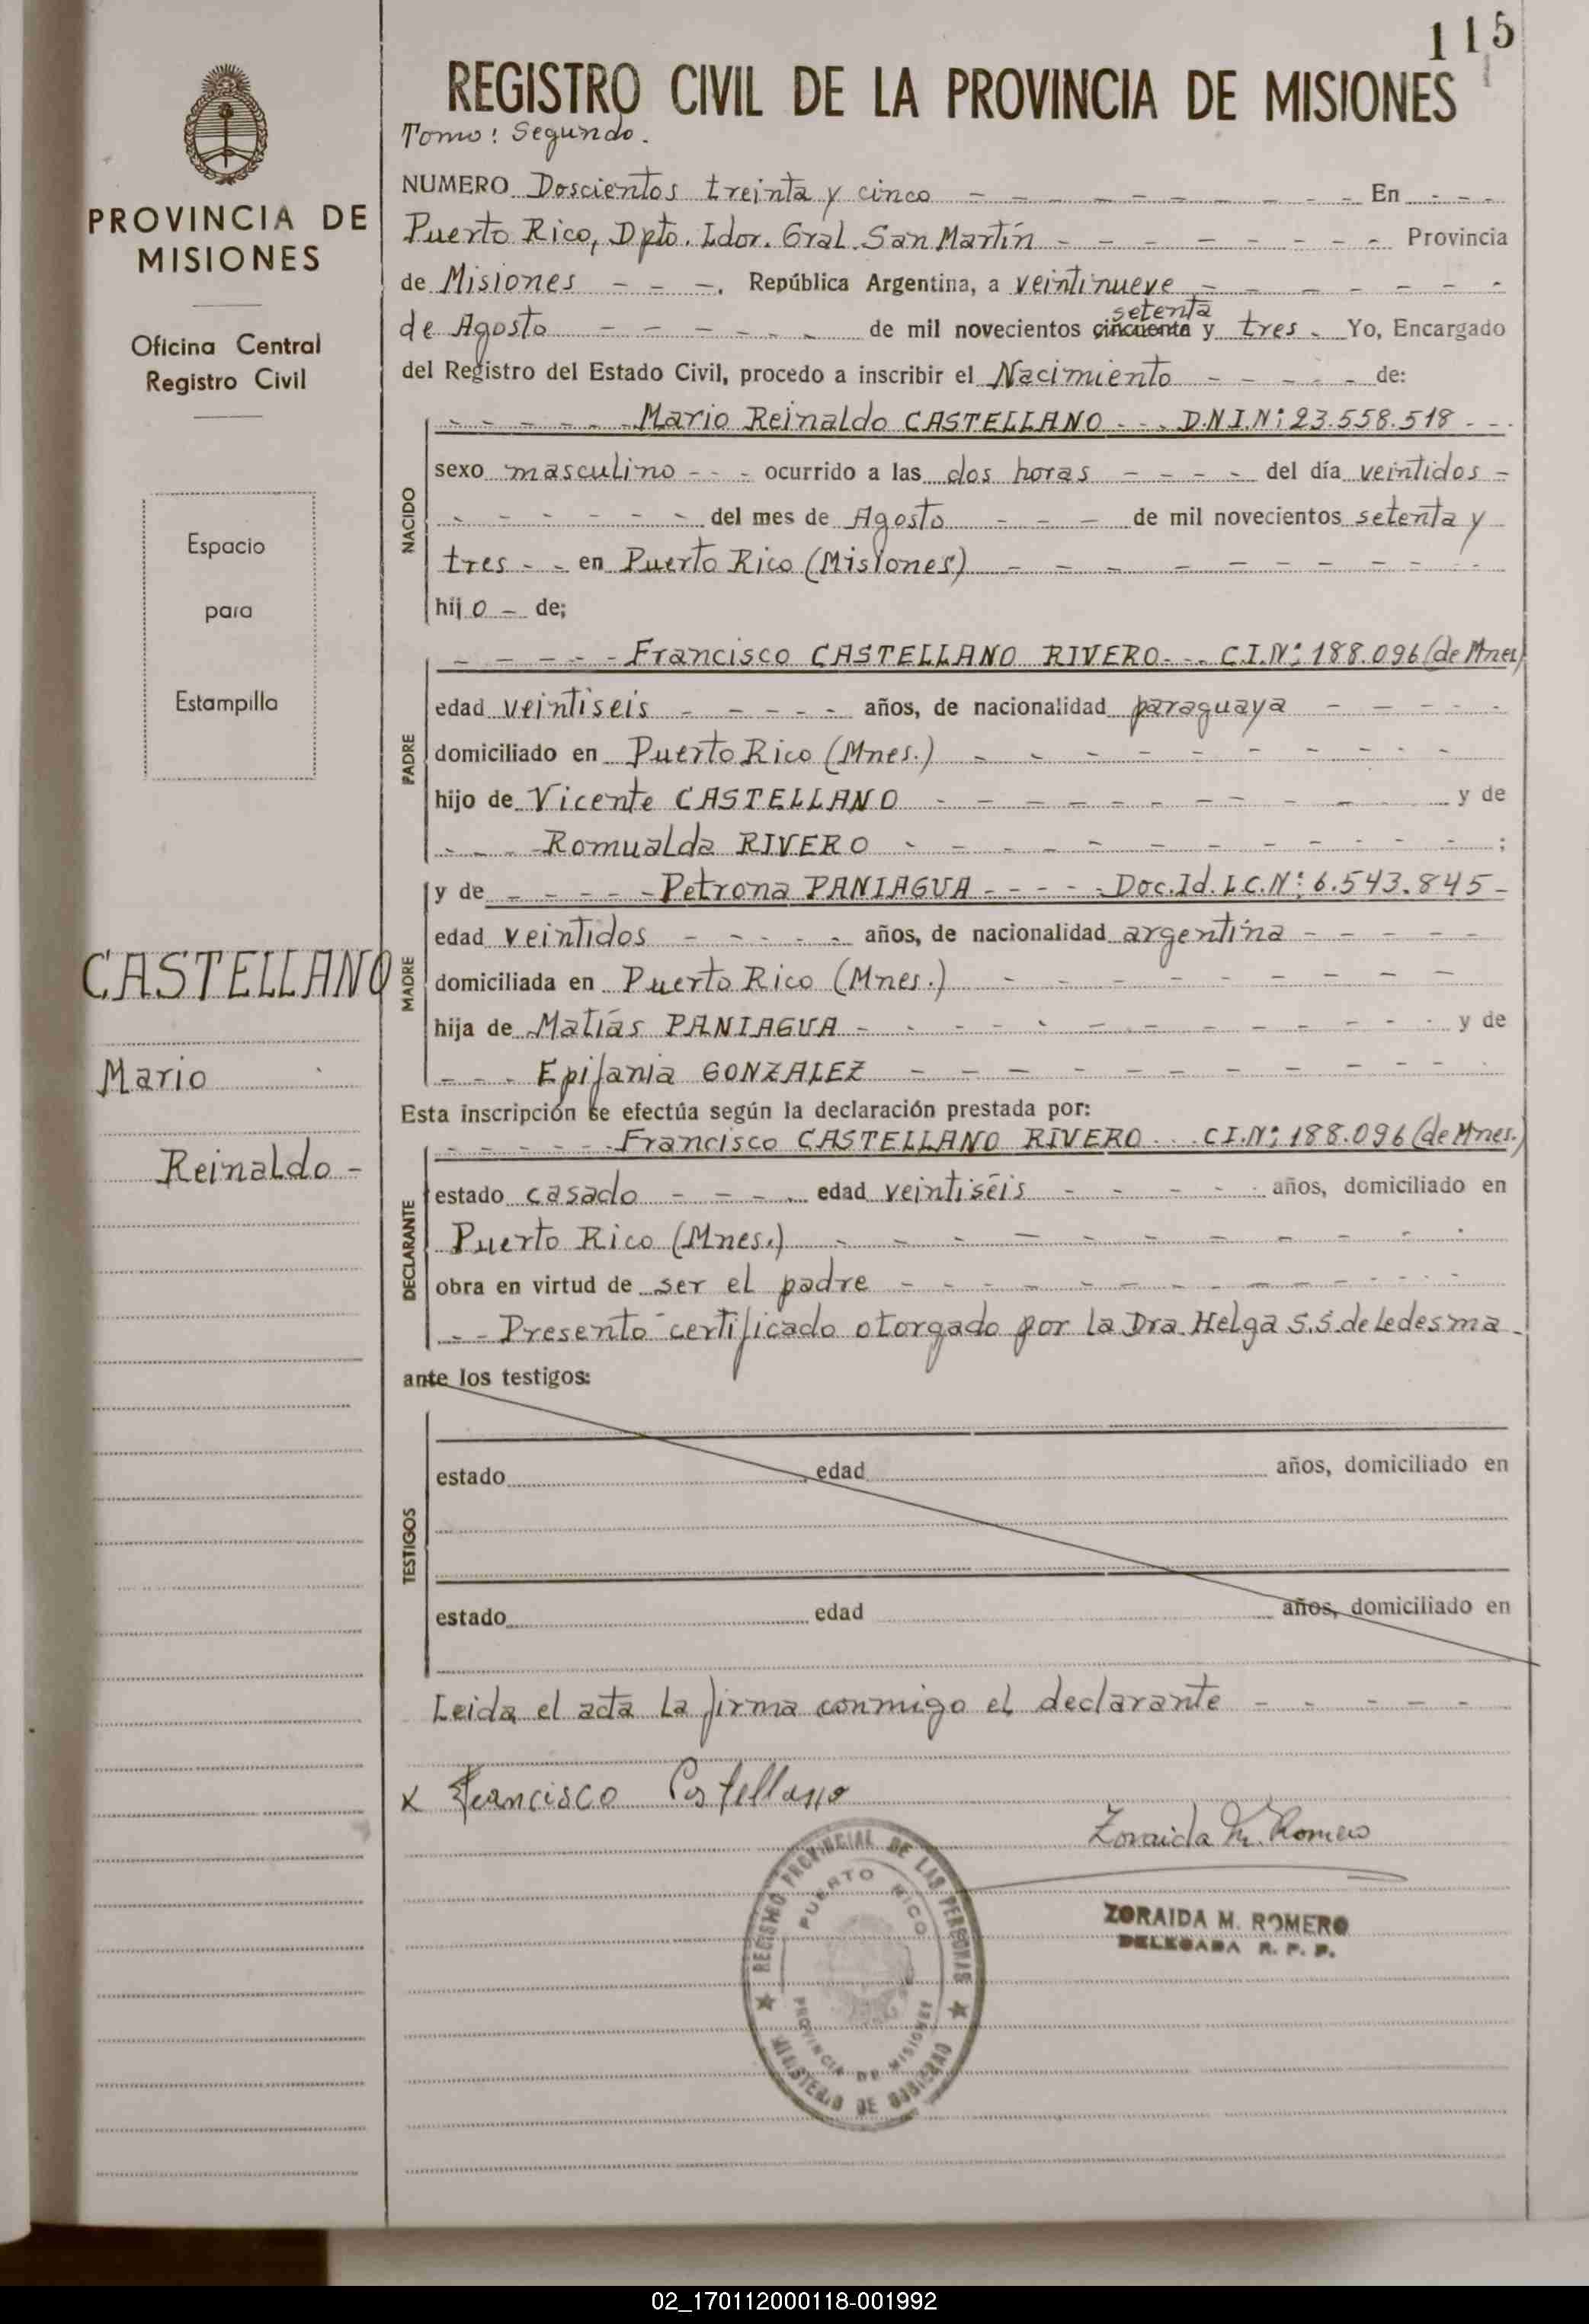 115
REGISTRO CIVIL DE LA PROVINCIA DE MISIONES
Tomo: Segundo.
PROVINCIA DE
MISIONES
Oficina Central
Registro Civil
Espacio
para
Estampilla
CASTELLANO
Mario
Reinaldo -
NUMERO Doscientos treinta y cinco - - - - - - - - - - En - - -
Puerto Rico, Dpto. Ldor. Gral. San Martín - - - - - - - - Provincia
de Misiones - - -, República Argentina, a veintinueve - - - - - - -
setenta
de Agosto - - - - - - de mil novecientos cincuenta y tres - Yo, Encargado
del Registro del Estado Civil, procedo a inscribir el Nacimiento - - - - - de:
NACIDO
- - - - - - Mario Reinaldo CASTELLANO - - - D.N.I.Nº: 23.558.518 - - -
sexo masculino - - - ocurrido a las dos horas - - - - del día veintidos -
- - - - - - - del mes de Agosto - - - de mil novecientos setenta y
tres - - en Puerto Rico (Misiones) - - - - - - - - - -
hijo - de;
PADRE
- - - - - Francisco CASTELLANO RIVERO - - C.I.Nº: 188.096 (de Mnes)
edad veintiseis - - - - - años, de nacionalidad paraguaya - - - - -
domiciliado en Puerto Rico (Mnes.) - - - - - - - - - -
hijo de Vicente CASTELLANO - - - - - - - - - - y de
- - - Romualda RIVERO - - - - - - - - - - - - ;
MADRE
y de - - - - - Petrona PANIAGUA - - - - - Doc.Id.L.C.Nº: 6.543.845 -
edad veintidos - - - - - años, de nacionalidad argentina - - - - -
domiciliada en Puerto Rico (Mnes.) - - - - - - - - -
hija de Matías PANIAGUA - - - - - - - - - - - - y de
- - - Epifania GONZALEZ - - - - - - - - - - - -
Esta inscripción se efectúa según la declaración prestada por:
DECLARANTE
- - - - - - Francisco CASTELLANO RIVERO - - - C.I.Nº: 188.096 (de Mnes.)
estado casado - - - - edad veintiséis - - - - - - años, domiciliado en
Puerto Rico (Mnes.) - - - - - - - - - - - -
obra en virtud de ser el padre - - - - - - - - - - - - -
- - Presentó certificado otorgado por la Dra. Helga S.S. de Ledesma -
ante los testigos:
TESTIGOS
estado edad años, domiciliado en
estado edad años, domiciliado en
Leida el acta la firma conmigo el declarante - - - - -
x Francisco Castellano
Zoraida M. Romero
ZORAIDA M. ROMERO
DELEGADA R. P. P.
REGISTRO PROVINCIAL DE LAS PERSONAS
PUERTO RICO
PROVINCIA DE MISIONES
MINISTERIO DE GOBIERNO
02_170112000118-001992